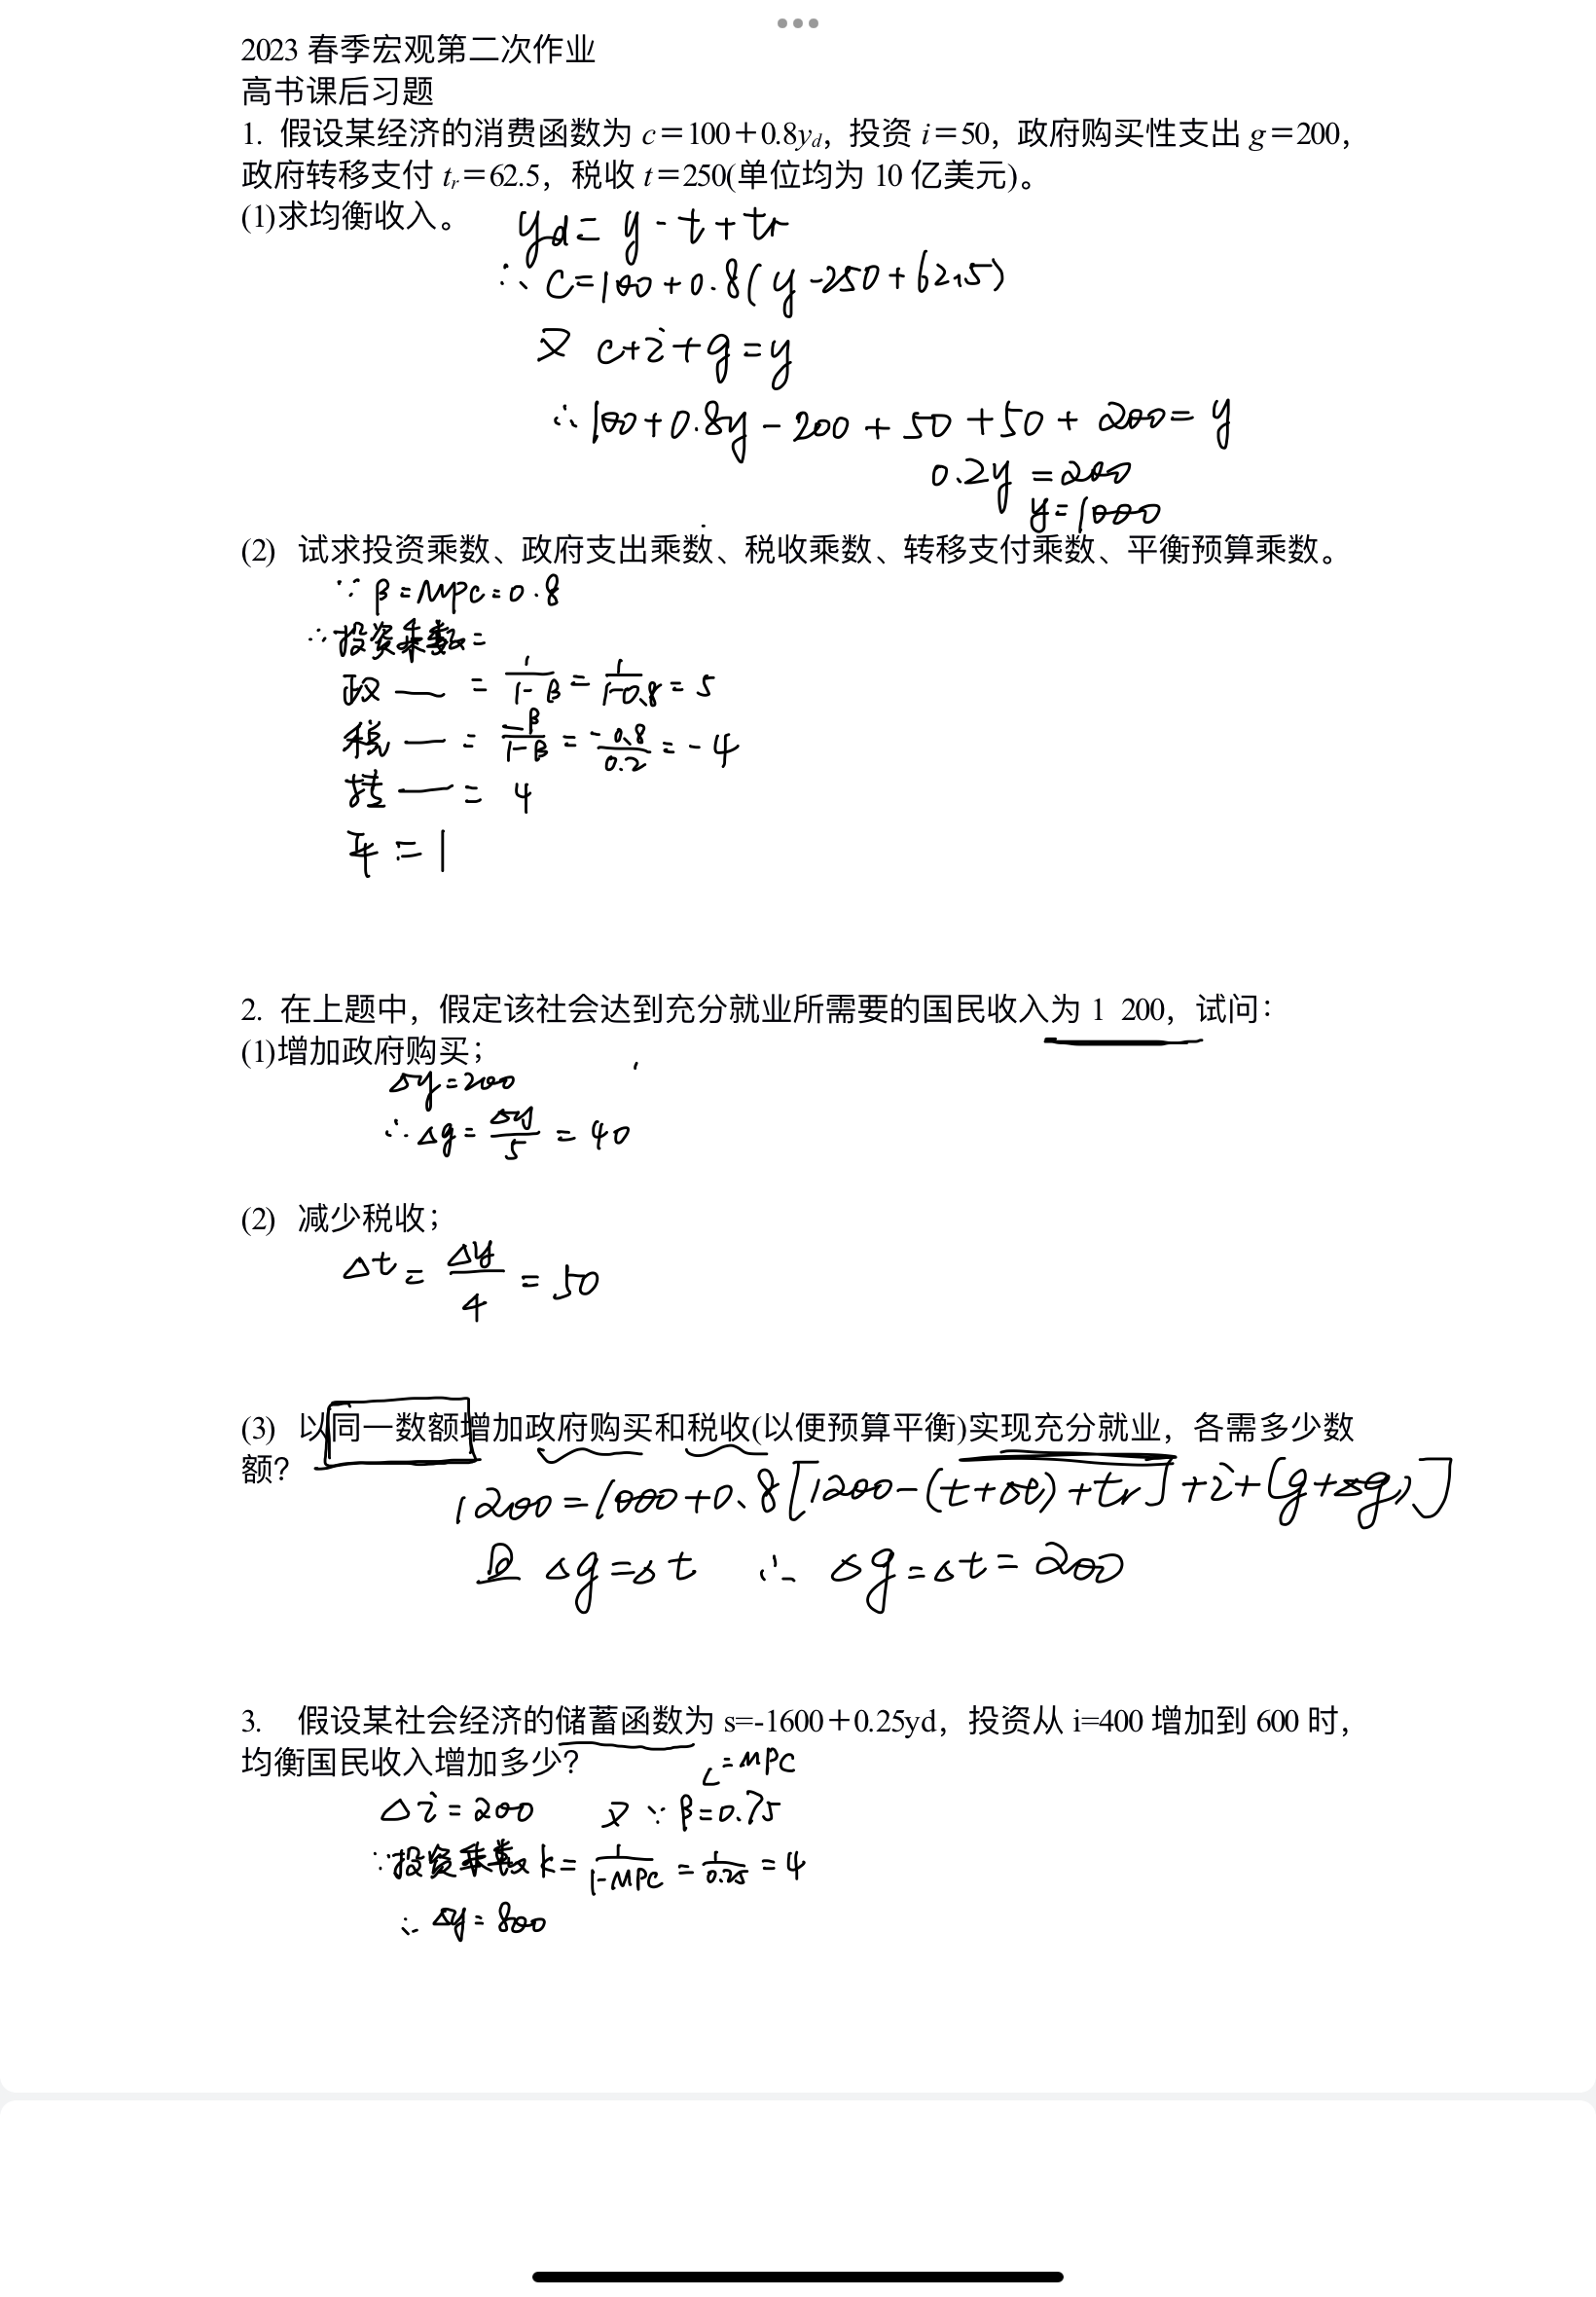 2023 春季宏观第二次作业
高书课后习题
1. 假设某经济的消费函数为 c＝100＋0.8yd，投资 i＝50，政府购买性支出 g＝200，
政府转移支付 tr＝62.5，税收 t＝250(单位均为 10 亿美元)。
(1)求均衡收入。
yd = y - t + tr
∴ c=100+0.8(y-250+62.5)
又 c+i+g=y
∴100+0.8y-200+50+50+200=y
0.2y=200
y=1000
(2) 试求投资乘数、政府支出乘数、税收乘数、转移支付乘数、平衡预算乘数。
∵ β=MPC=0.8
∴投资乘数=
政 — = 1/(1-β) = 1/(1-0.8) = 5
税 — = -β/(1-β) = -0.8/0.2 = -4
转 — = 4
平 = 1
2. 在上题中，假定该社会达到充分就业所需要的国民收入为 1 200，试问：
(1)增加政府购买；
Δy=200
∴Δg=Δy/5=40
(2) 减少税收；
Δt=Δy/4=50
(3) 以同一数额增加政府购买和税收(以便预算平衡)实现充分就业，各需多少数
额？
1200=1000+0.8[1200-(t+Δt)+tr]+i+(g+Δg)]
且 Δg=Δt ∴ Δg=Δt=200
3. 假设某社会经济的储蓄函数为 s=-1600＋0.25yd，投资从 i=400 增加到 600 时，
均衡国民收入增加多少？
=MPC
Δi=200 又∵β=0.75
∵投资乘数 k=1/(1-MPC)=1/0.25=4
∴ Δy=800